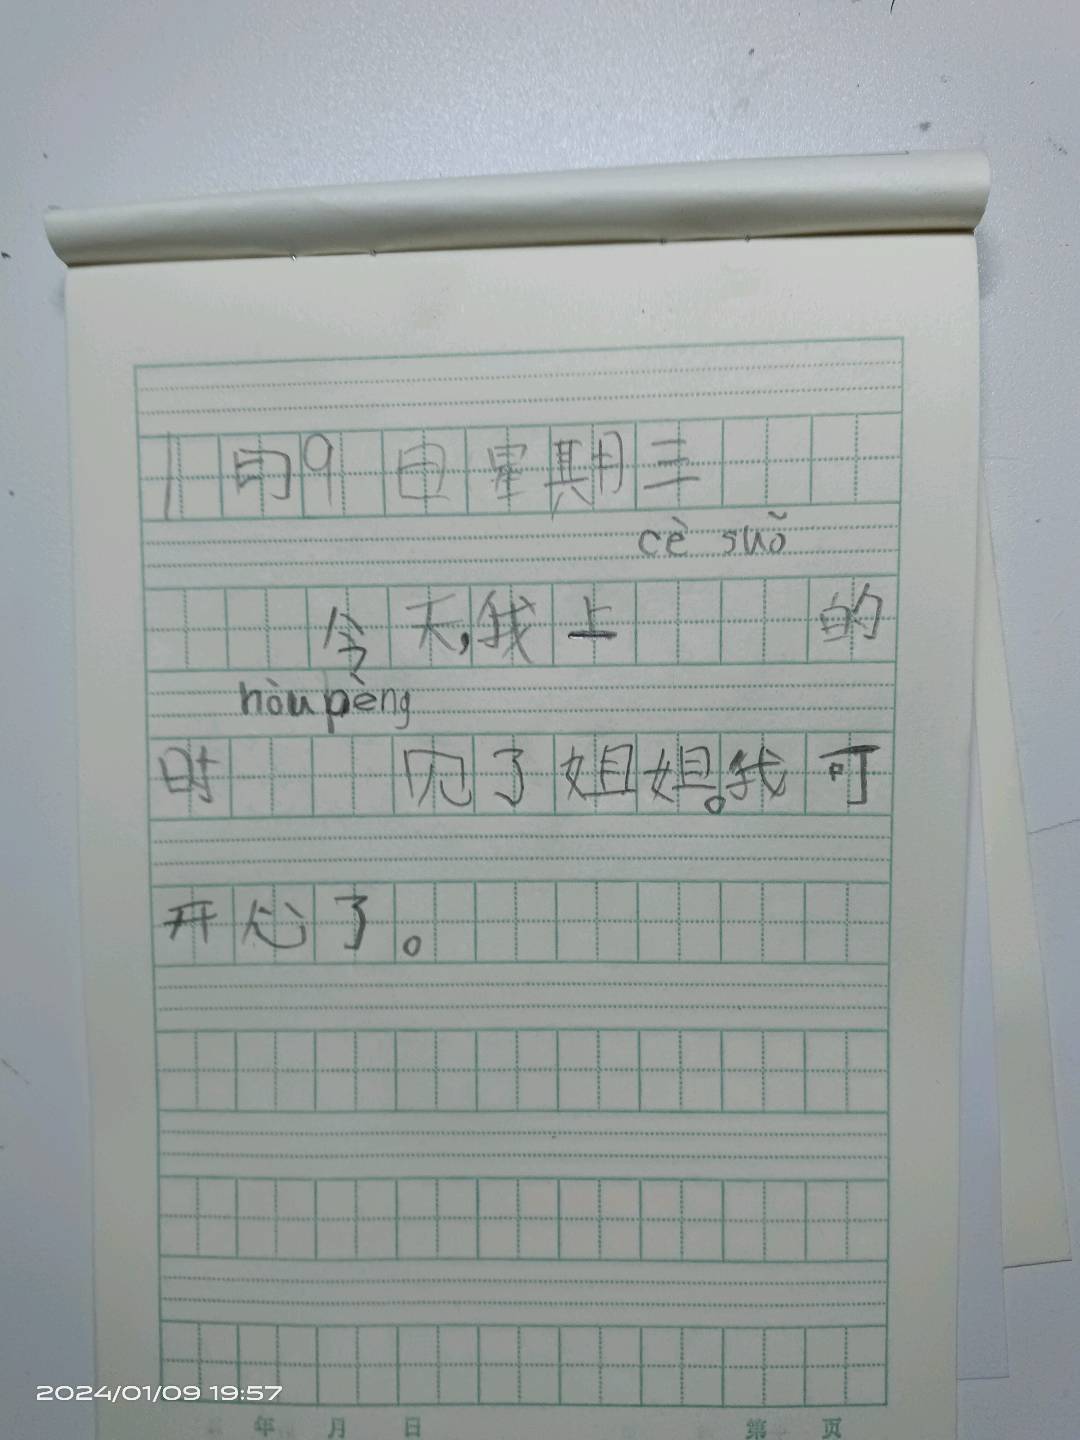 1月9日星期三
cè suǒ
今天,我上 的
hòu pèng
时 见了姐姐。我可
开心了。
年 月 日 第 页
2024/01/09 19:57